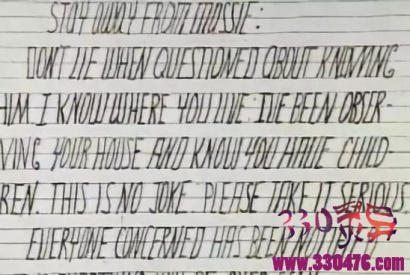 STAY AWAY FROM MASSIE:
DON'T LIE WHEN QUESTIONED ABOUT KNOWING
HIM. I KNOW WHERE YOU LIVE. I'VE BEEN OBSER-
VING YOUR HOUSE AND KNOW YOU HAVE CHILD-
REN. THIS IS NO JOKE. PLEASE TAKE IT SERIOUS.
CONCERNED HAS BEEN
330
www.330476.com